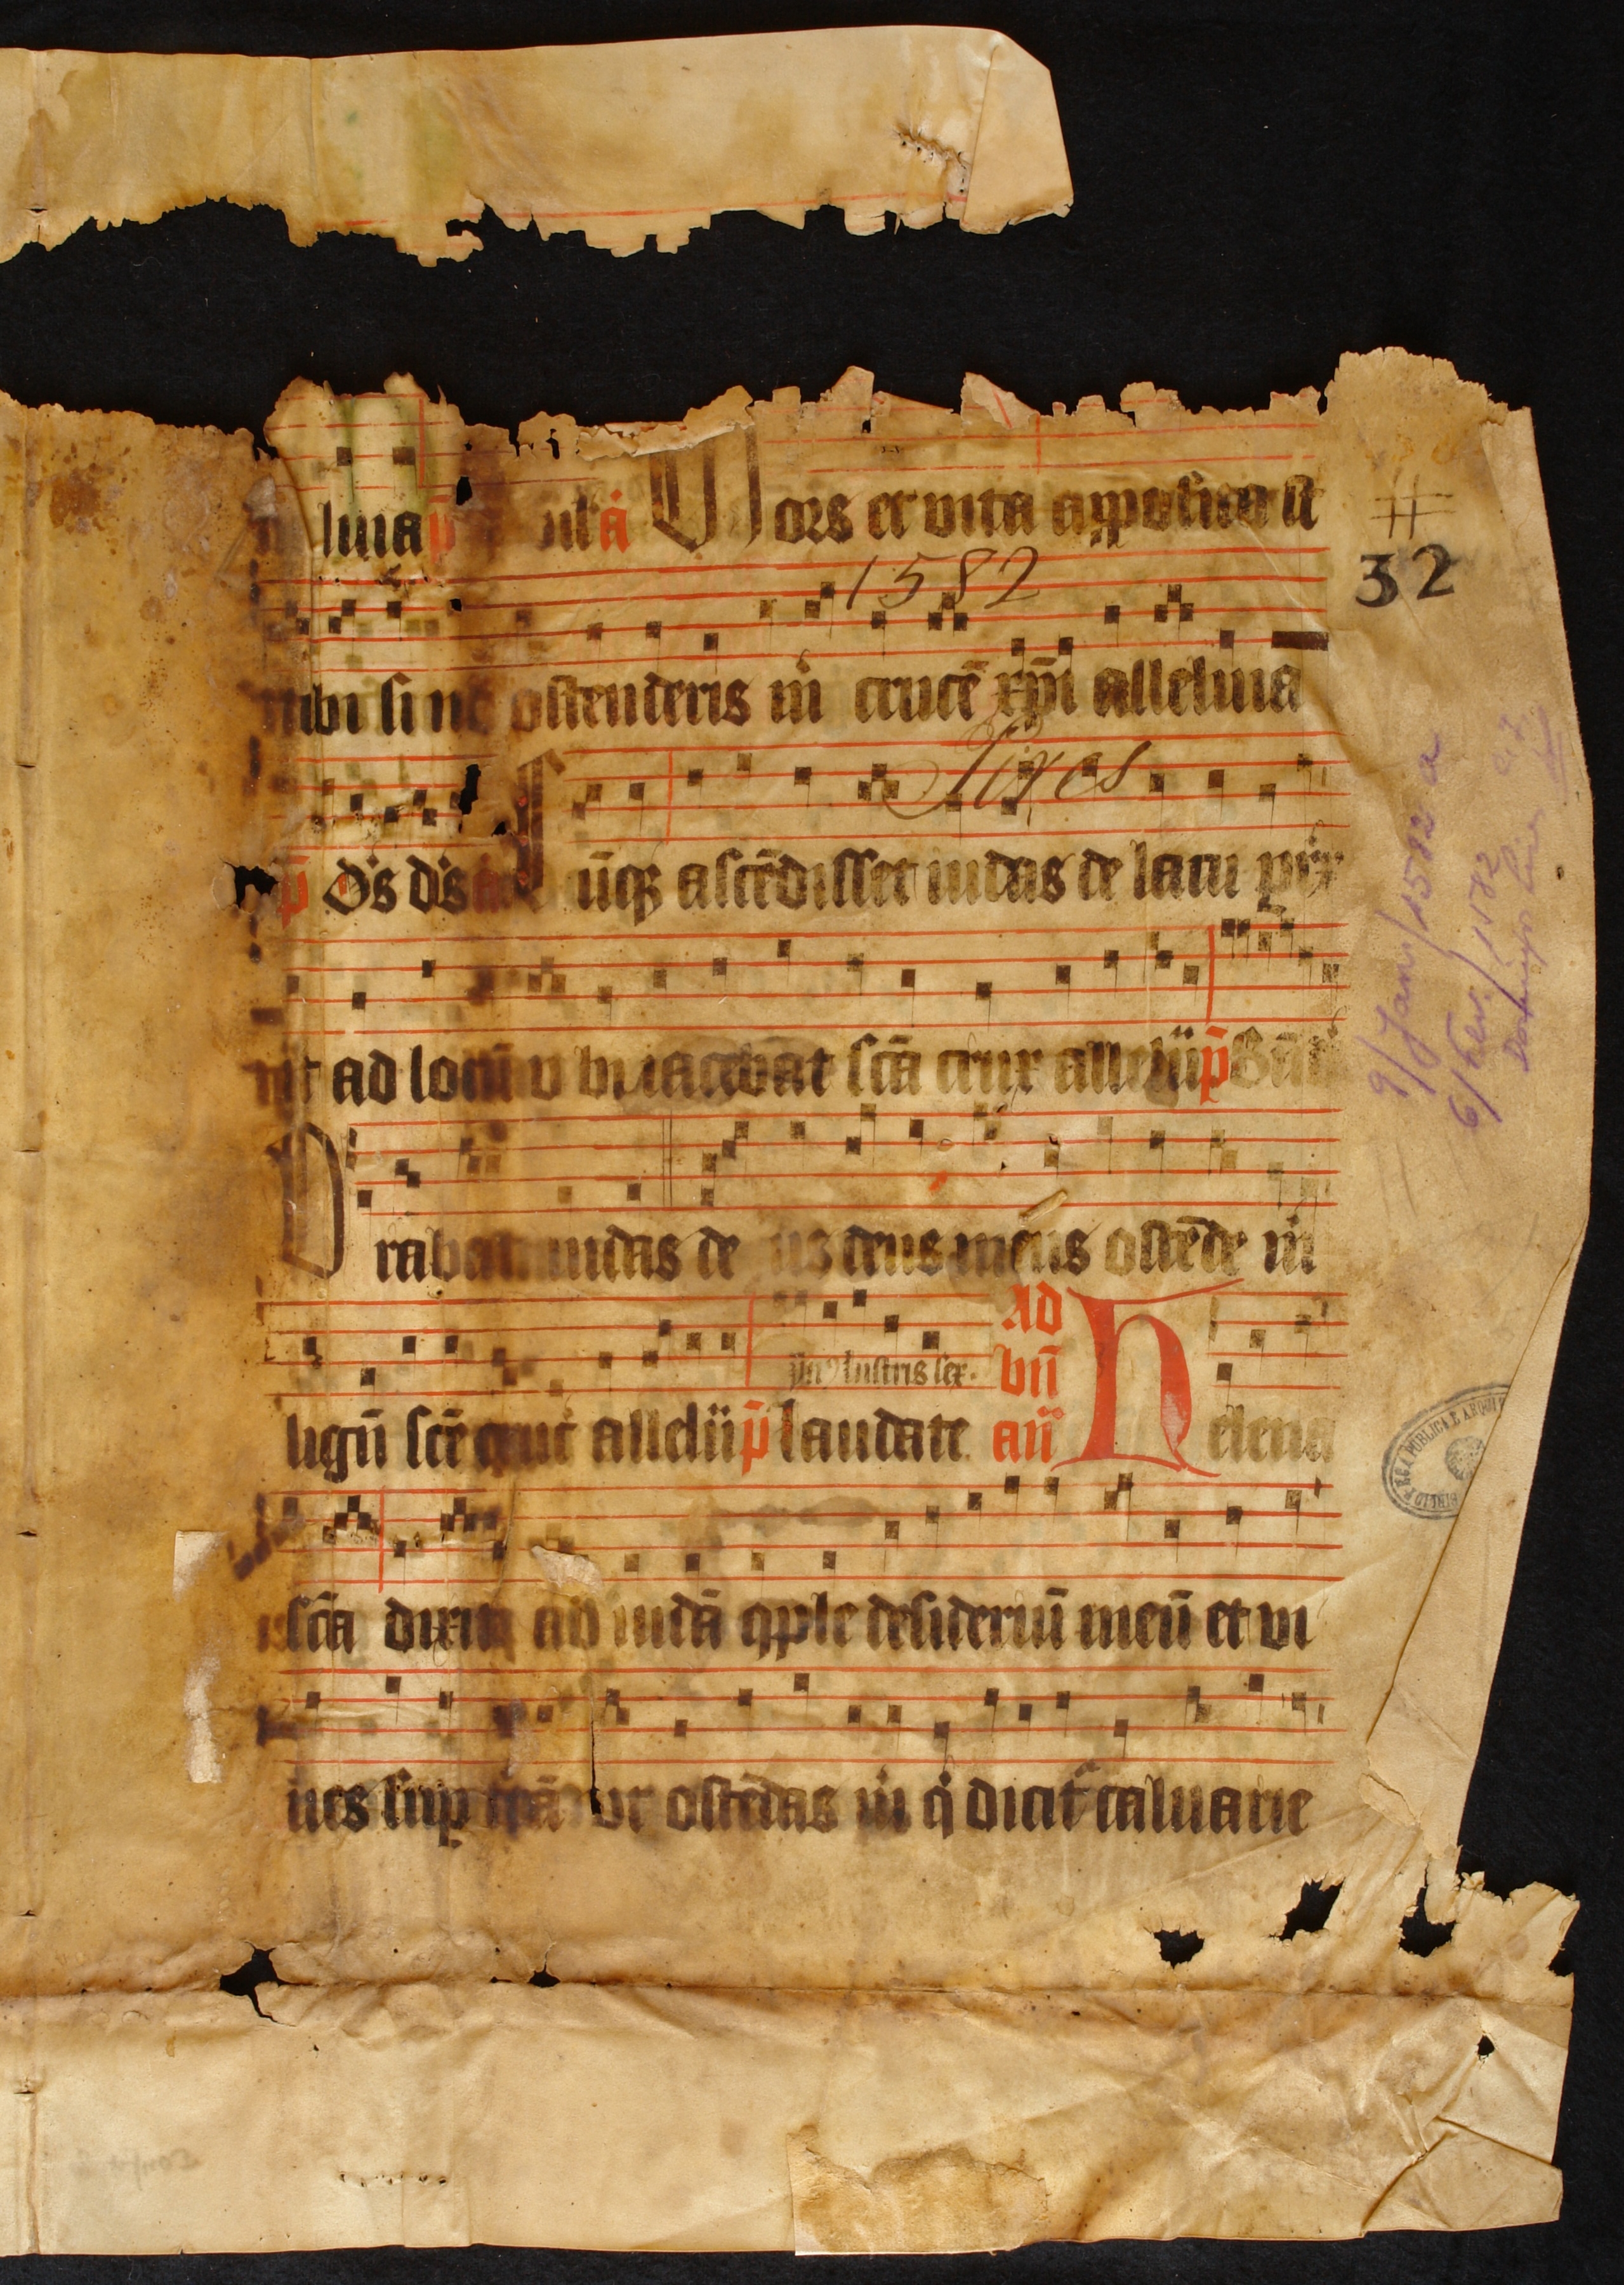 luia p̄ a Mors et vita apposita st
32
1582
mihi si nō ostenderis m̄ crucē xp̄i alleluia
Pires
p̄ d̄s d̄s a Cūqȝ ascēdisset iudas de lacu p̄r
xit ad locū v bi iacebat sc̄a crux allelūi p̄
Orabat iudas deus deus meus ostēde m̄
In lustris sex.
Ad
bn̄
lignū sc̄e cruc̄ allelūi p̄ laudate an̄ Helena
sc̄a dixit ad iudā cōple desideriū meū et vi
ues sup̱ t̄rā vt ostēdas m̄ q̄ dicit̄ caluarie
9/Janr/1582 a
6/Fev./1582
BIBLIOTECA PUBLICA E ARQUI